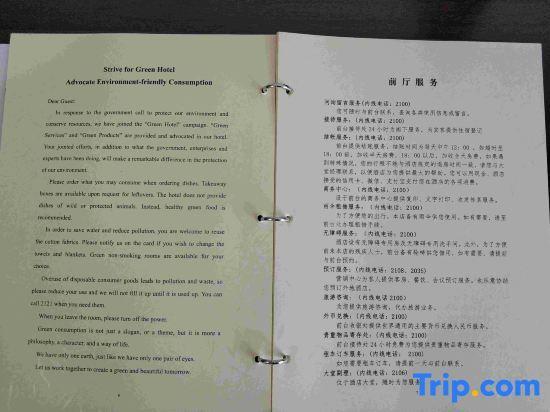 Strive for Green Hotel
Advocate Environment-friendly Consumption
Dear Guest:
In response to the government call to protect our environment and
conserve resources, we have joined the "Green Hotel" campaign. "Green
Services" and "Green Products" are provided and advocated in our hotel.
Your jointed efforts, in addition to what the government, enterprises and
experts have been doing, will make a remarkable difference in the protection
of our environment.
Please order what you may consume when ordering dishes. Takeaway
boxes are available upon request for leftovers. The hotel does not provide
dishes of wild or protected animals. Instead, healthy green food is
recommended.
In order to save water and reduce pollution, you are welcome to reuse
the cotton fabrics. Please notify us on the card if you wish to change the
towels and blankets. Green non-smoking rooms are available for your
choice.
Overuse of disposable consumer goods leads to pollution and waste, so
please reduce your use and we will not fill it up until it is used up. You can
call 2121 when you need them.
When you leave the room, please turn off the power.
Green consumption is not just a slogan, or a theme, but it is more a
philosophy, a character, and a way of life.
We have only one earth, just like we have only one pair of eyes.
Let us work together to create a green and beautiful tomorrow.
前厅服务
问询留言服务(内线电话：2100)
您可随时与前台联系，查询各类使用信息或留言。
接待服务：(内线电话：2100)
前台接待处24小时为阁下服务，为宾客提供住宿登记
结账服务：(内线电话：2100)
商务中心：(内线电话：2100)
设于前台的商务中心提供复印、文字打印、收发传真服务。
雨伞租借服务：(内线电话：2100)
为了方便您的出行，本店备有雨伞供您使用。如有需要，请至
前台办理租借手续。
无障碍服务：(内线电话：2100)
与前台预约。
预订服务：(内线电话：2108、2035)
营销中心为客人提供客房、餐饮、会议预订服务。
旅游咨询：(内线电话：2100)
为您提供旅游咨询，代办旅游业务。
外币兑换：(内线电话：2100)
前台收银处提供世界通用的主要货币兑换人民币服务。
贵重物品寄存处：(内线电话：2100)
前台接待处24小时免费为您提供贵重物品寄存服务。
租车订车服务：(内线电话：2100)
如您需要租车订车，请提前一天与前台联系。
大堂副理：(内线电话：2106)
位于酒店大堂，随时为您服务
Trip.com